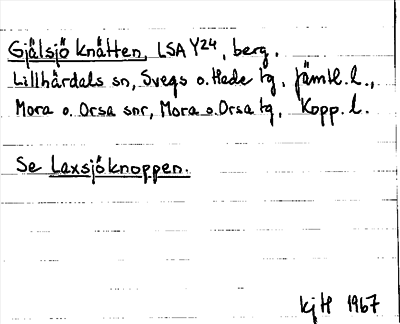 Gjälsjö knätten, LSA Y24, berg.
Lillhärdals sn, Svegs o. Hede tg, Jämtl. l.,
Mora o. Orsa snr, Mora o. Orsa tg, Kopp. l.
Se Laxsjöknoppen.
kjH 1967